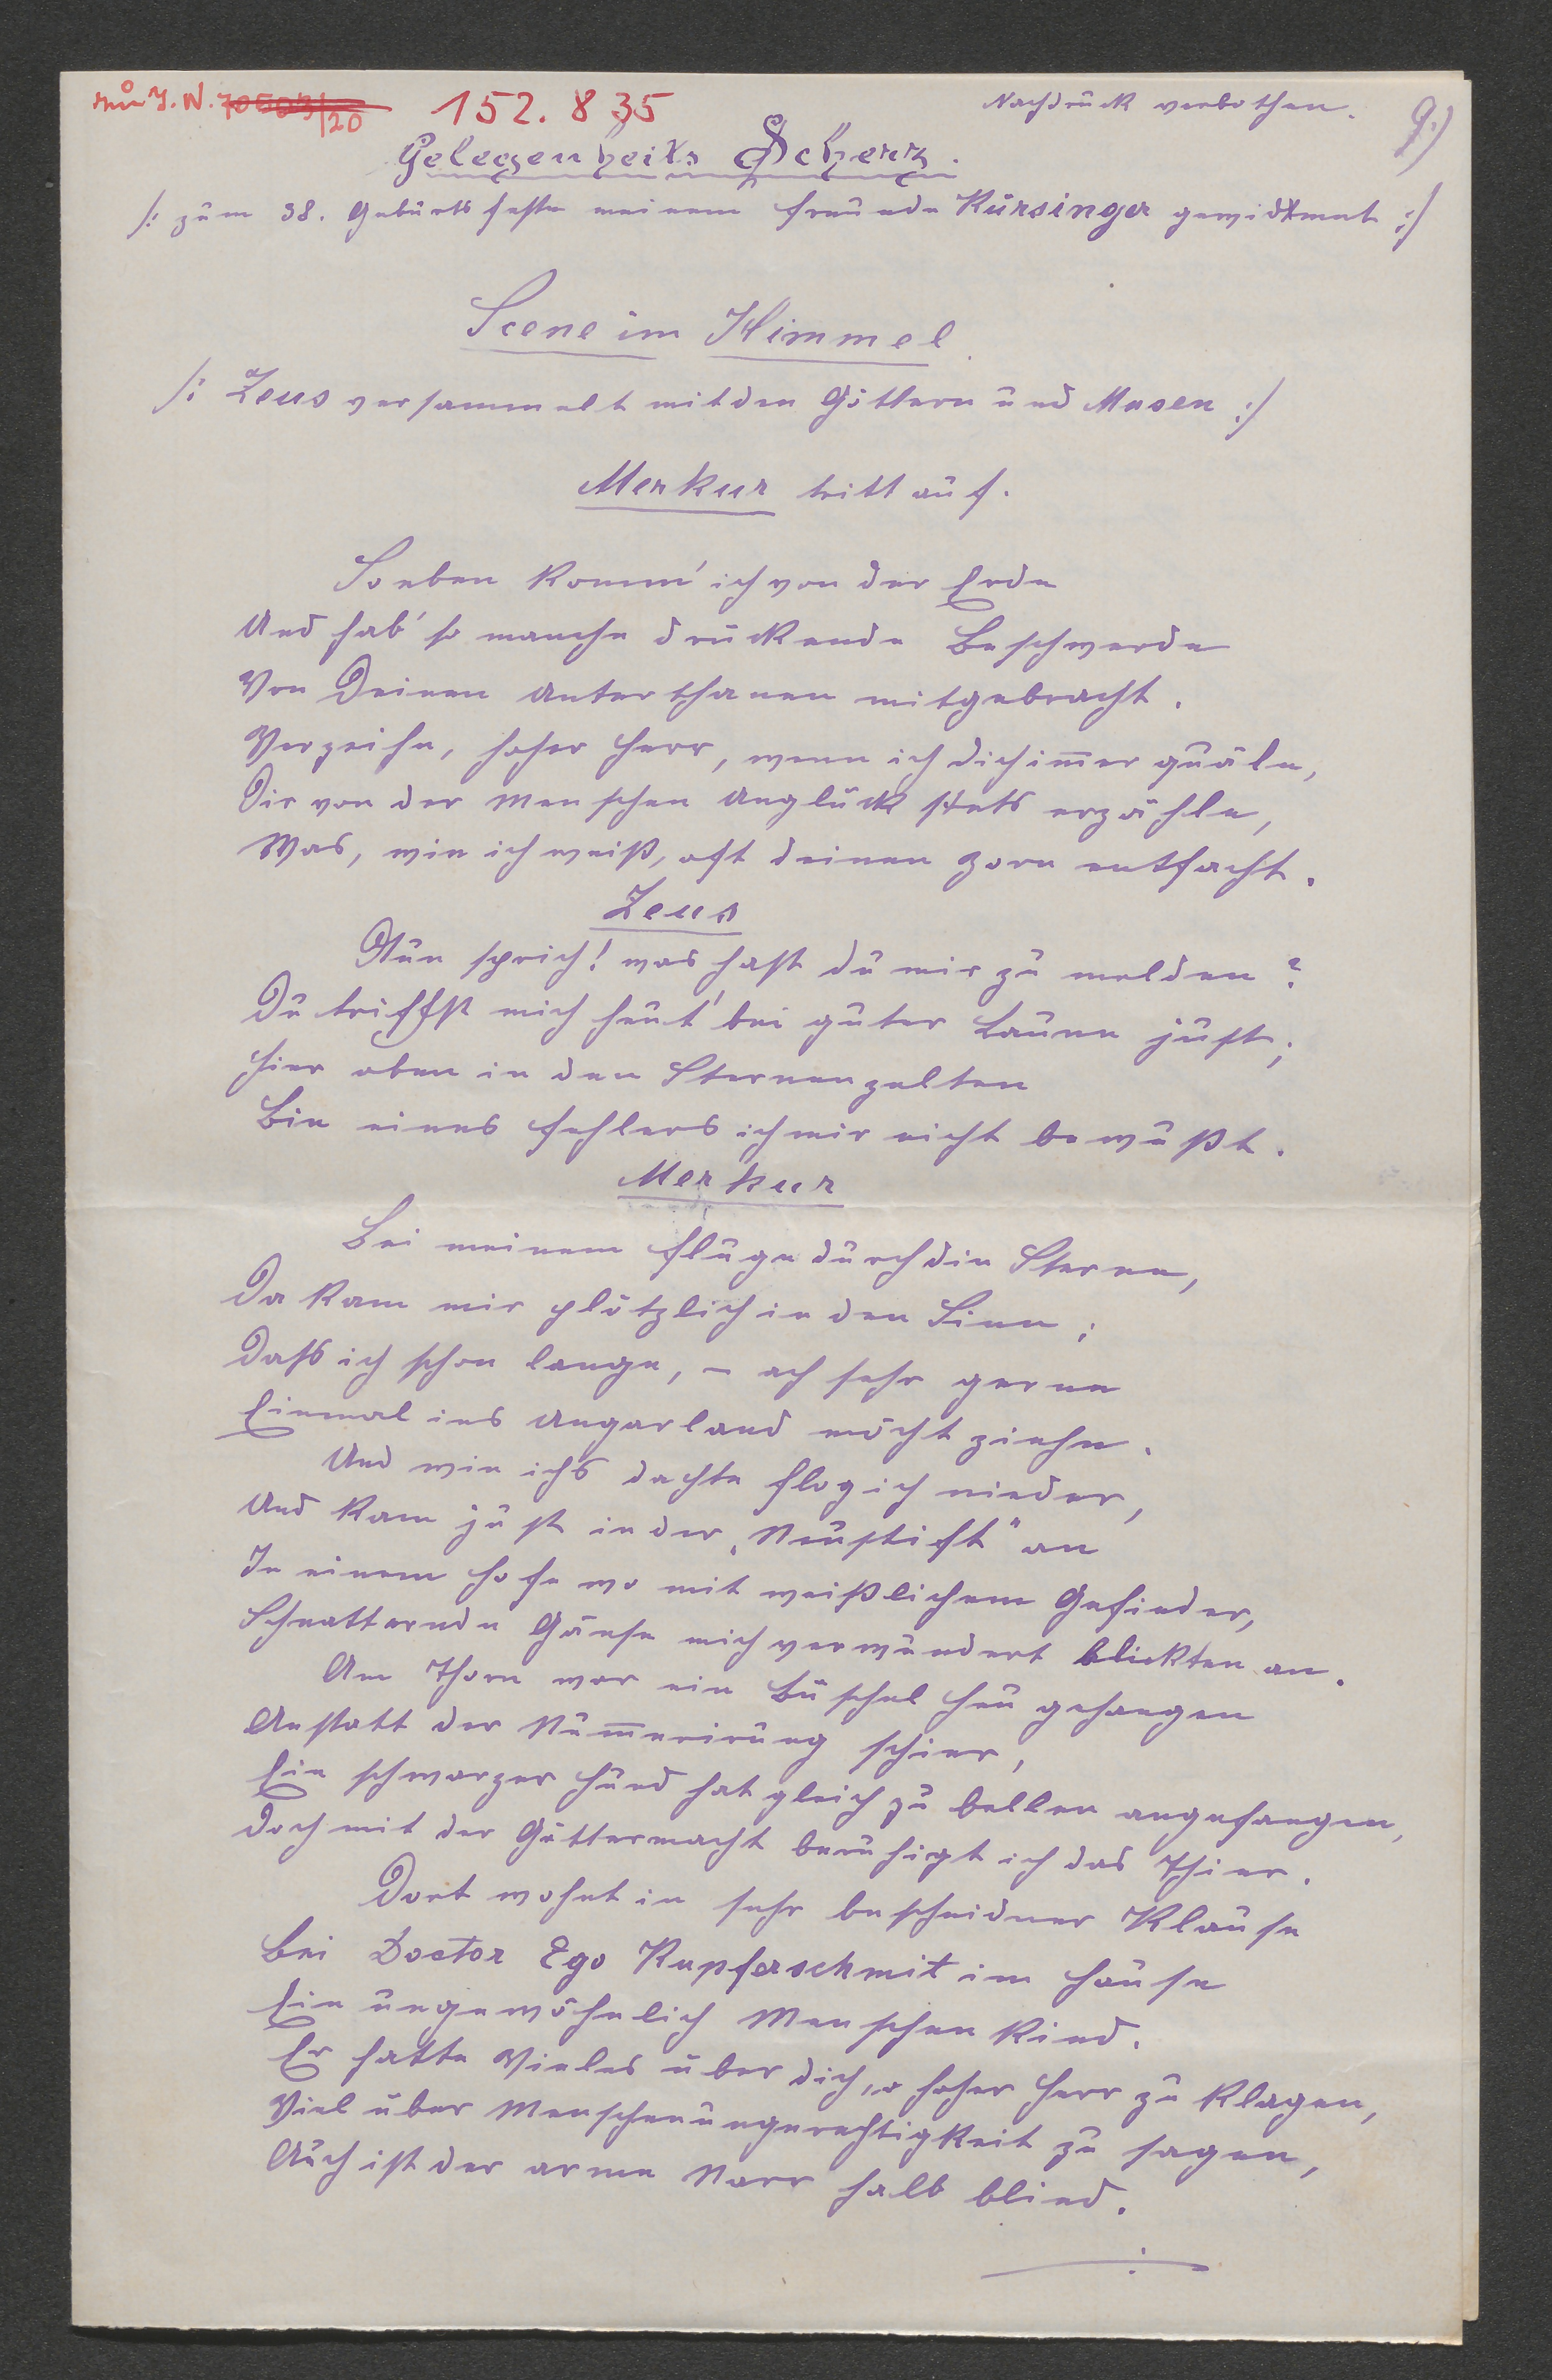 J. N. 152.835
Nachdruck verbothen.
9.)
Gelegenheits Scherz.
/: zum 38. Geburtsfeste meinem Freunde Kürsinger gewidtmet :/
Scene im Himmel.
/: Zeus versammelt mit den Göttern und Musen :/
Merkur tritt auf.
Soeben komm' ich von der Erde
Und hab' so manche drückende Beschwerde
Von Deinen Unterthanen mitgebracht.
Verzeihe, hoher Herr, wenn ich dich im̅er quäle,
Dir von der Menschen Unglück stets erzähle,
Was, wie ich weiß, oft deinen Zorn entfacht.
Zeus
Nun sprich! was hast du mir zu melden?
Du triffst mich heut' bei guter Laune just;
Hier oben in den Sternenzelten
Bin eines Fehlers ich mir nicht bewußt.
Merkur
Bei meinem Fluge durch die Sterne,
Da kam mir plötzlich in den Sinn;
Dass ich schon lange, – ach sehr gerne
Einmal ins Ungarland möcht ziehn.
Und wie ichs dachte flog ich nieder,
Und kam just in der „Neustift" an
In einem Hofe wo mit weißlichem Gefieder,
Schnatternde Gänse mich verwundert blickten an.
Am Thore war ein Büschel Heu gehangen
Anstatt der Num̅erirung schier,
Ein schwarzer Hund hat gleich zu bellen angefangen,
Doch mit der Göttermacht beruhigt ich das Thier.
Dort wohnt in sehr bescheidner Klause
Bei Doctor Ego Kupferschmit im Hause
Ein ungewöhnlich Menschenkind.
Er hatte Vieles über dich, o hoher Herr zu klagen,
Viel über Menschenungerechtigkeit zu sagen,
Auch ist der arme Narr halb blind.